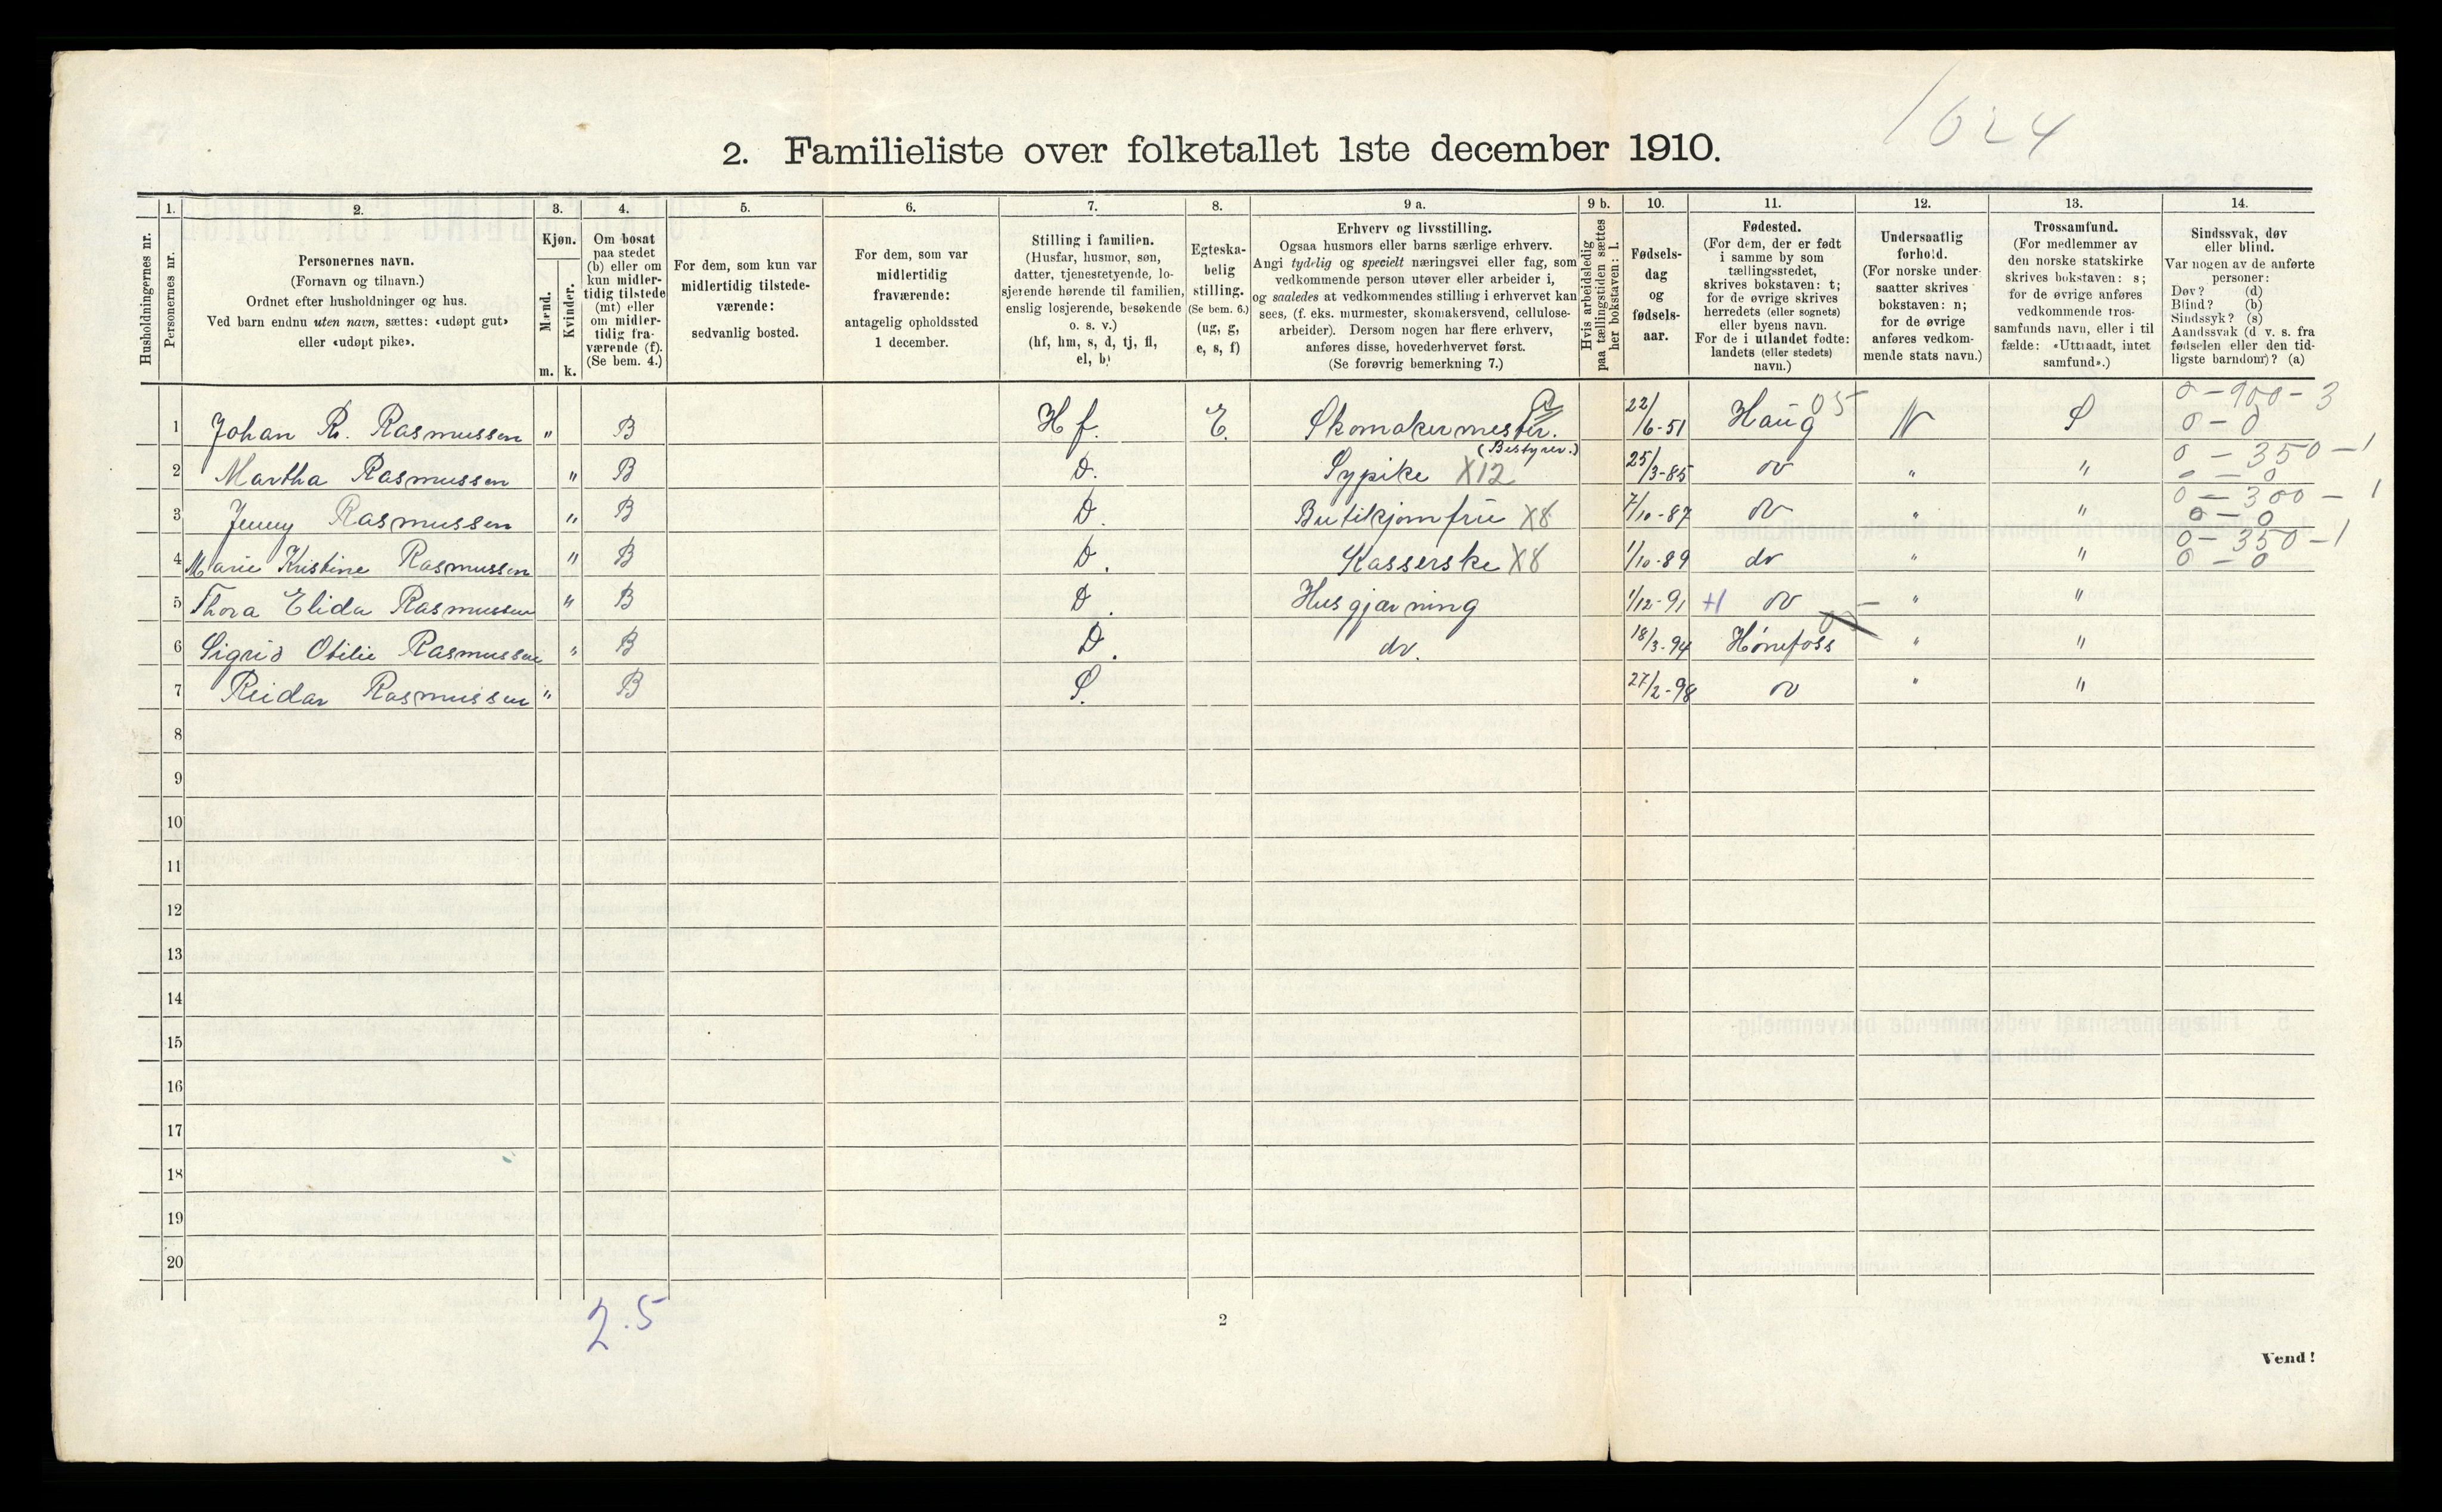 1624
2. Familieliste over folketallet 1ste december 1910.
Husholdningernes nr.
1. Personernes nr.
2. Personernes navn.
(Fornavn og tilnavn.)
Ordnet efter husholdninger og hus.
Ved barn endnu uten navn, sættes: «udøpt gut»
eller «udøpt pike».
3. Kjøn.
Mænd. m.
Kvinder. k.
4. Om bosat
paa stedet
(b) eller om
kun midler-
tidig tilstede
(mt) eller
om midler-
tidig fra-
værende (f).
(Se bem. 4.)
5. For dem, som kun var
midlertidig tilstede-
værende:
sedvanlig bosted.
6. For dem, som var
midlertidig
fraværende:
antagelig opholdssted
1 december.
7. Stilling i familien.
(Husfar, husmor, søn,
datter, tjenestetyende, lo-
sjerende hørende til familien,
enslig losjerende, besøkende
o. s. v.)
(hf, hm, s, d, tj, fl,
el, b)
8. Egteska-
belig
stilling.
(Se bem. 6.)
(ug, g,
e, s, f)
9 a. Erhverv og livsstilling.
Ogsaa husmors eller barns særlige erhverv.
Angi tydelig og specielt næringsvei eller fag, som
vedkommende person utøver eller arbeider i,
og saaledes at vedkommendes stilling i erhvervet kan
sees, (f. eks. murmester, skomakersvend, cellulose-
arbeider). Dersom nogen har flere erhverv,
anføres disse, hovederhvervet først.
(Se forøvrig bemerkning 7.)
9 b. Hvis arbeidsledig
paa tællingstiden sættes
her bokstaven: l.
10. Fødsels-
dag
og
fødsels-
aar.
11. Fødested.
(For dem, der er født
i samme by som
tællingsstedet,
skrives bokstaven: t;
for de øvrige skrives
herredets (eller sognets)
eller byens navn.
For de i utlandet fødte:
landets (eller stedets)
navn.)
12. Undersaatlig
forhold.
(For norske under-
saatter skrives
bokstaven: n;
for de øvrige
anføres vedkom-
mende stats navn.)
13. Trossamfund.
(For medlemmer av
den norske statskirke
skrives bokstaven: s;
for de øvrige anføres
vedkommende tros-
samfunds navn, eller i til-
fælde: «Uttraadt, intet
samfund».)
14. Sindssvak, døv
eller blind.
Var nogen av de anførte
personer:
Døv? (d)
Blind? (b)
Sindssyk? (s)
Aandssvak (d. v. s. fra
fødselen eller den tid-
ligste barndom)? (a)
0 - 900 - 3
1 Johan R. Rasmussen " B Hf. E. Skomakermester. 22/6-51 Haug 05 N S 0 - 0
(Bestyrer.) 0 - 350 - 1
2 Martha Rasmussen " B D. Sypike X12 25/3-85 do " " 0 - 0
0 - 300 - 1
3 Jenny Rasmussen " B D. Butikjomfru X8 7/10-87 do " " 0 - 0
0 - 350 - 1
4 Marie Kristine Rasmussen " B D. Kasserske X8 1/10-89 do " " 0 - 0
5 Thora Elida Rasmussen " B D. Husgjærning 1/12-91 +1 do " "
6 Sigrid Otilie Rasmussen " B D. do. 18/3-94 Hønefoss " "
7 Reidar Rasmussen " B S. 27/2-98 do " "
8
9
10
11
12
13
14
15
16
17
18
19
20
2.5
2
Vend!